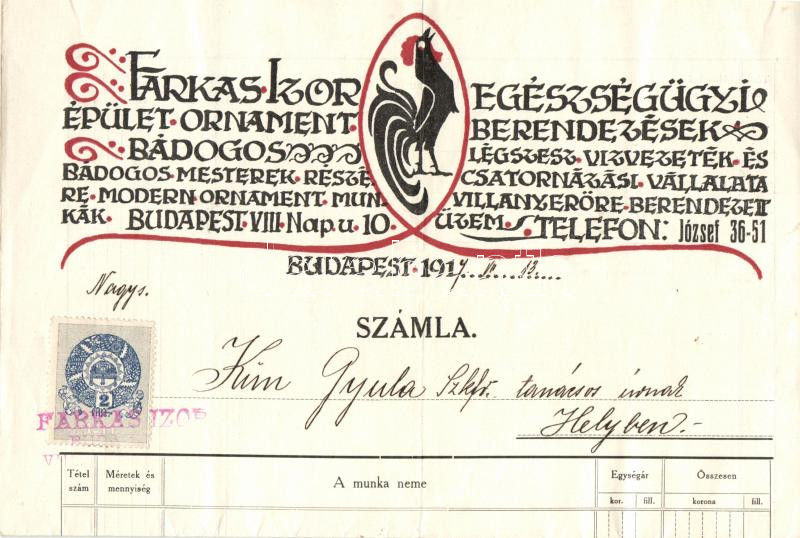 FARKAS·IZOR
ÉPÜLET·ORNAMENT·
BÁDOGOS
BÁDOGOS·MESTEREK·RÉSZÉ-
RE·MODERN·ORNAMENT·MUN-
KÁK·BUDAPEST·VIII·Nap.u.10.
EGÉSZSÉGÜGYI
BERENDEZÉSEK
LÉGSZESZ·VIZVEZETÉK·ÉS
CSATORNÁZÁSI·VÁLLALATA
VILLANYERŐRE·BERENDEZETT
ÜZEM·TELEFON: József 36-51
BUDAPEST·1917. IV. 13.
Nagys.
SZÁMLA.
Kún Gyula Szkfv. tanácsos úrnak
Helyben.-
2
FARKAS IZOR
Tétel szám
Méretek és mennyiség
A munka neme
Egységár
kor. fill.
Összesen
korona fill.